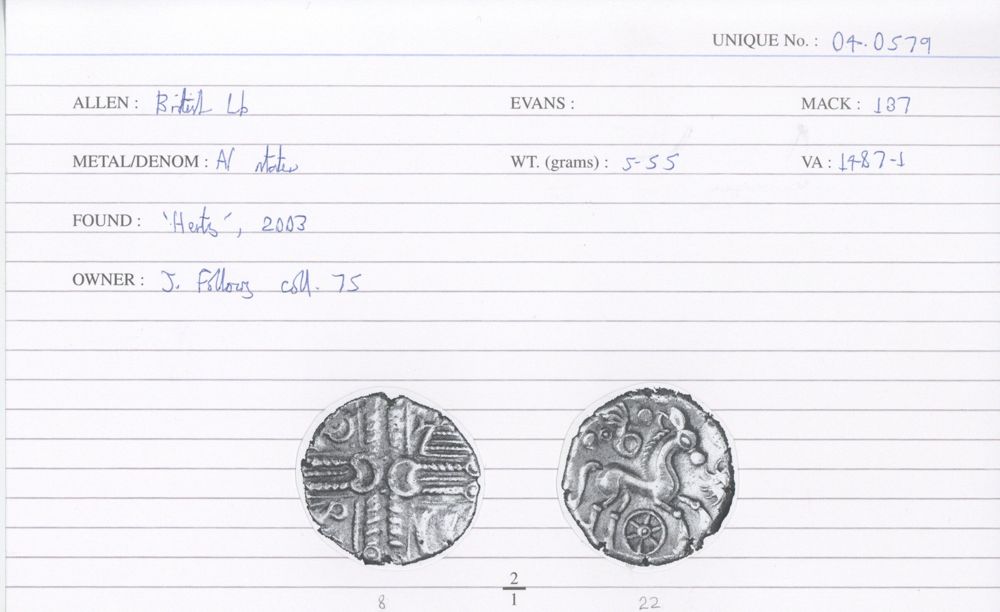 UNIQUE No. : 04.0579
ALLEN : British Lb EVANS : MACK : 137
METAL/DENOM : A/ stater WT. (grams) : 5.55 VA : 1487-1
FOUND : 'Herts', 2003
OWNER : J. Follows coll. 75
2
8 1 22